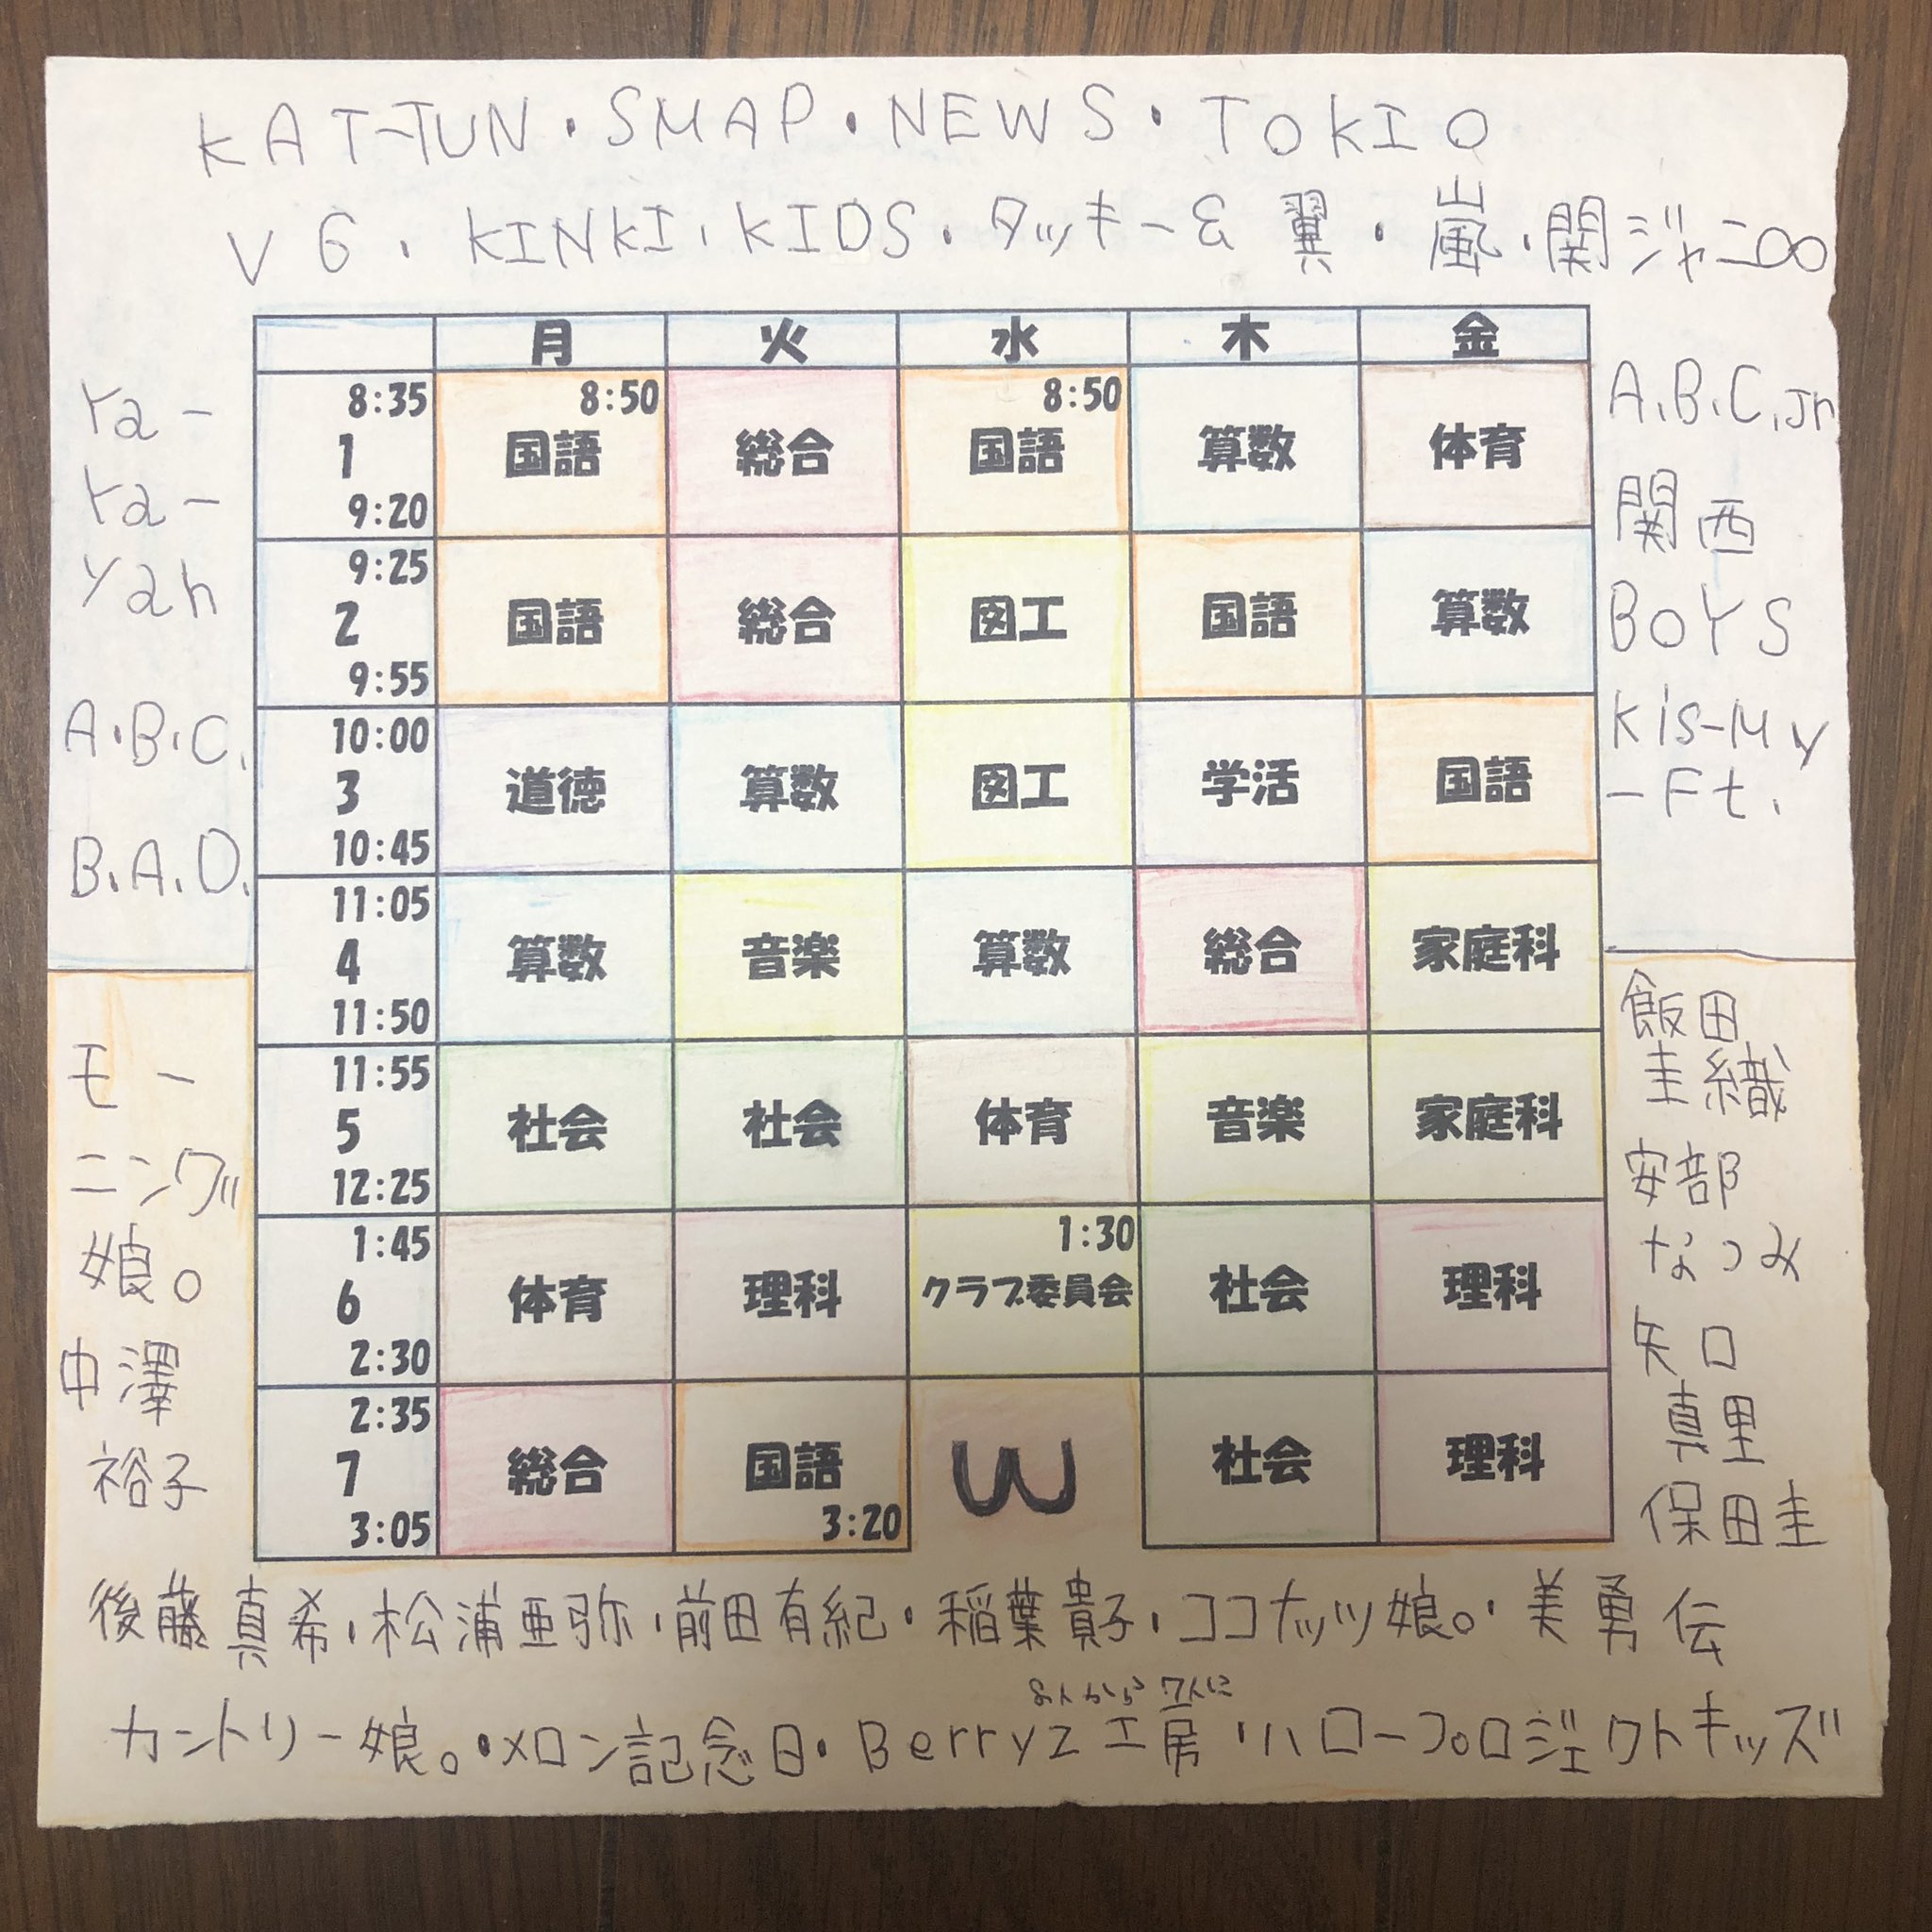 KAT-TUN・SMAP・NEWS・TOKIO
V6・KINKI・KIDS・タッキー&翼・嵐・関ジャニ∞
月 火 水 木 金
8:35 8:50 8:50
1 国語 総合 国語 算数 体育
9:20
9:25
2 国語 総合 図工 国語 算数
9:55
10:00
3 道徳 算数 図工 学活 国語
10:45
11:05
4 算数 音楽 算数 総合 家庭科
11:50
11:55
5 社会 社会 体育 音楽 家庭科
12:25
1:45 1:30
6 体育 理科 クラブ委員会 社会 理科
2:30
2:35
7 総合 国語 W 社会 理科
3:05 3:20
Ya-
Ya-
Yah
A.B.C.
B.A.D.
モー
ニング
娘。
中澤
裕子
A.B.C.Jr
関西
BOYS
Kis-My
-Ft.
飯田
圭織
安部
なつみ
矢口
真里
保田圭
後藤真希・松浦亜弥・前田有紀・稲葉貴子・ココナッツ娘。・美勇伝
8人から7人に
カントリー娘。・メロン記念日・Berryz工房・ハロープロジェクトキッズ